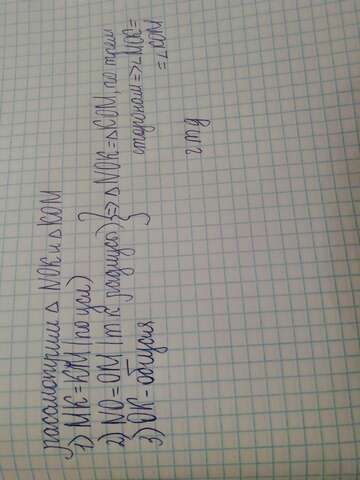 рассмотрим △ NOK и △ KOM
1) NK = KM (по усл)
2) NO = OM (т к радиусы) } => △ NOK = △ KOM, по трем
3) OK - общая
сторонам => ∠NOK =
= ∠KOM
чтд